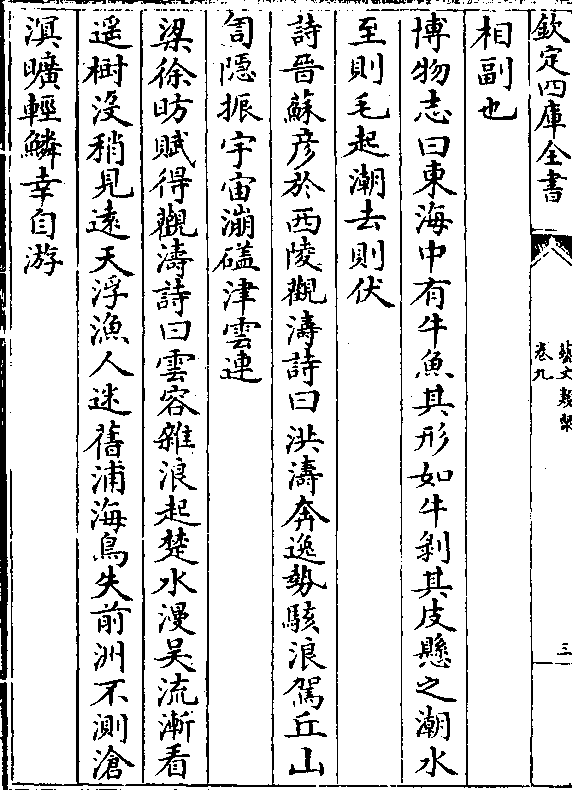 欽定四庫全書
藝文類聚
卷九
三
相副也
博物志曰東海中有牛魚其形如牛剝其皮懸之潮水
至則毛起潮去則伏
詩晉蘇彦於西陵觀濤詩曰洪濤奔逸勢駭浪駕丘山
訇隱振宇宙漰磕津雲連
梁徐昉賦得觀濤詩曰雲容雜浪起楚水漫吳流漸看
遥樹没稍見遠天浮漁人迷舊浦海鳥失前洲不測滄
溟曠輕鱗幸自游